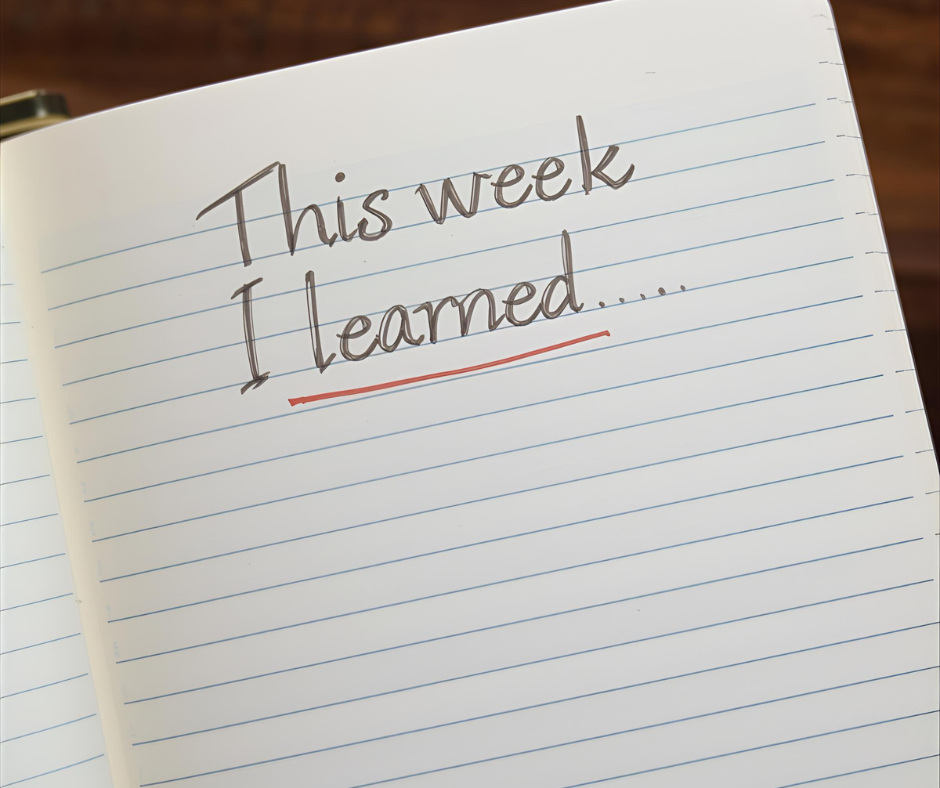 This week
I learned.....